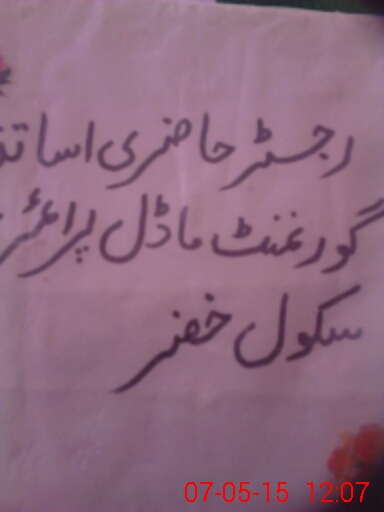 رجسٹر حاضری اساتذ
گورنمنٹ ماڈل پرائمر
سکول خضر
07-05-15 12:07